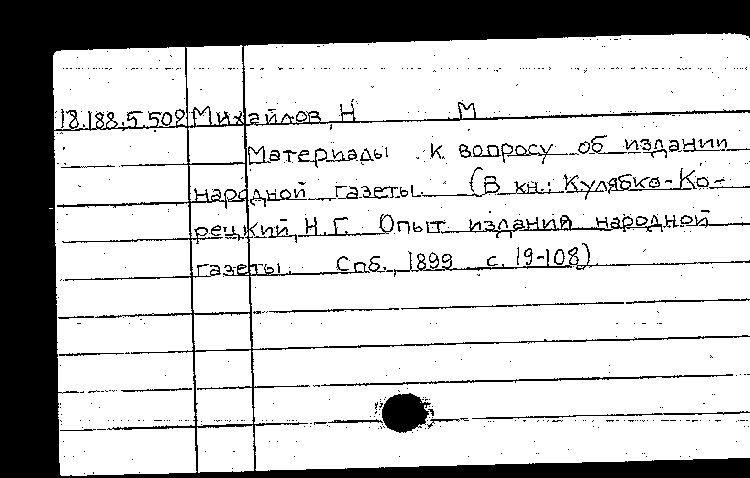 18.188.5.502 Михайлов, Н М
Материалы к вопросу об издании
народной газеты. (В кн.: Кулябко-Ко-
рецкий, Н.Г. Опыт издания народной
газеты. Спб., 1899 с. 19-108)